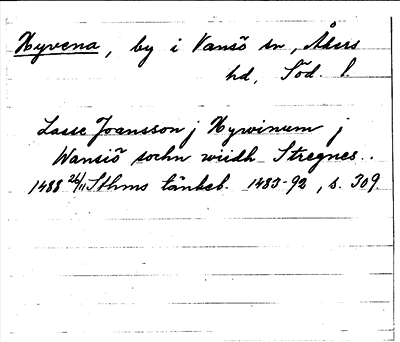 Hyvena, by i Vansö sn, Åkers
hd, Söd. l.
Lasse Joansson j Hyrvinum j
Wansiö sochn wiidh Stregnes.
1488 26/11 Sthms tänkeb. 1483-92, s. 309.